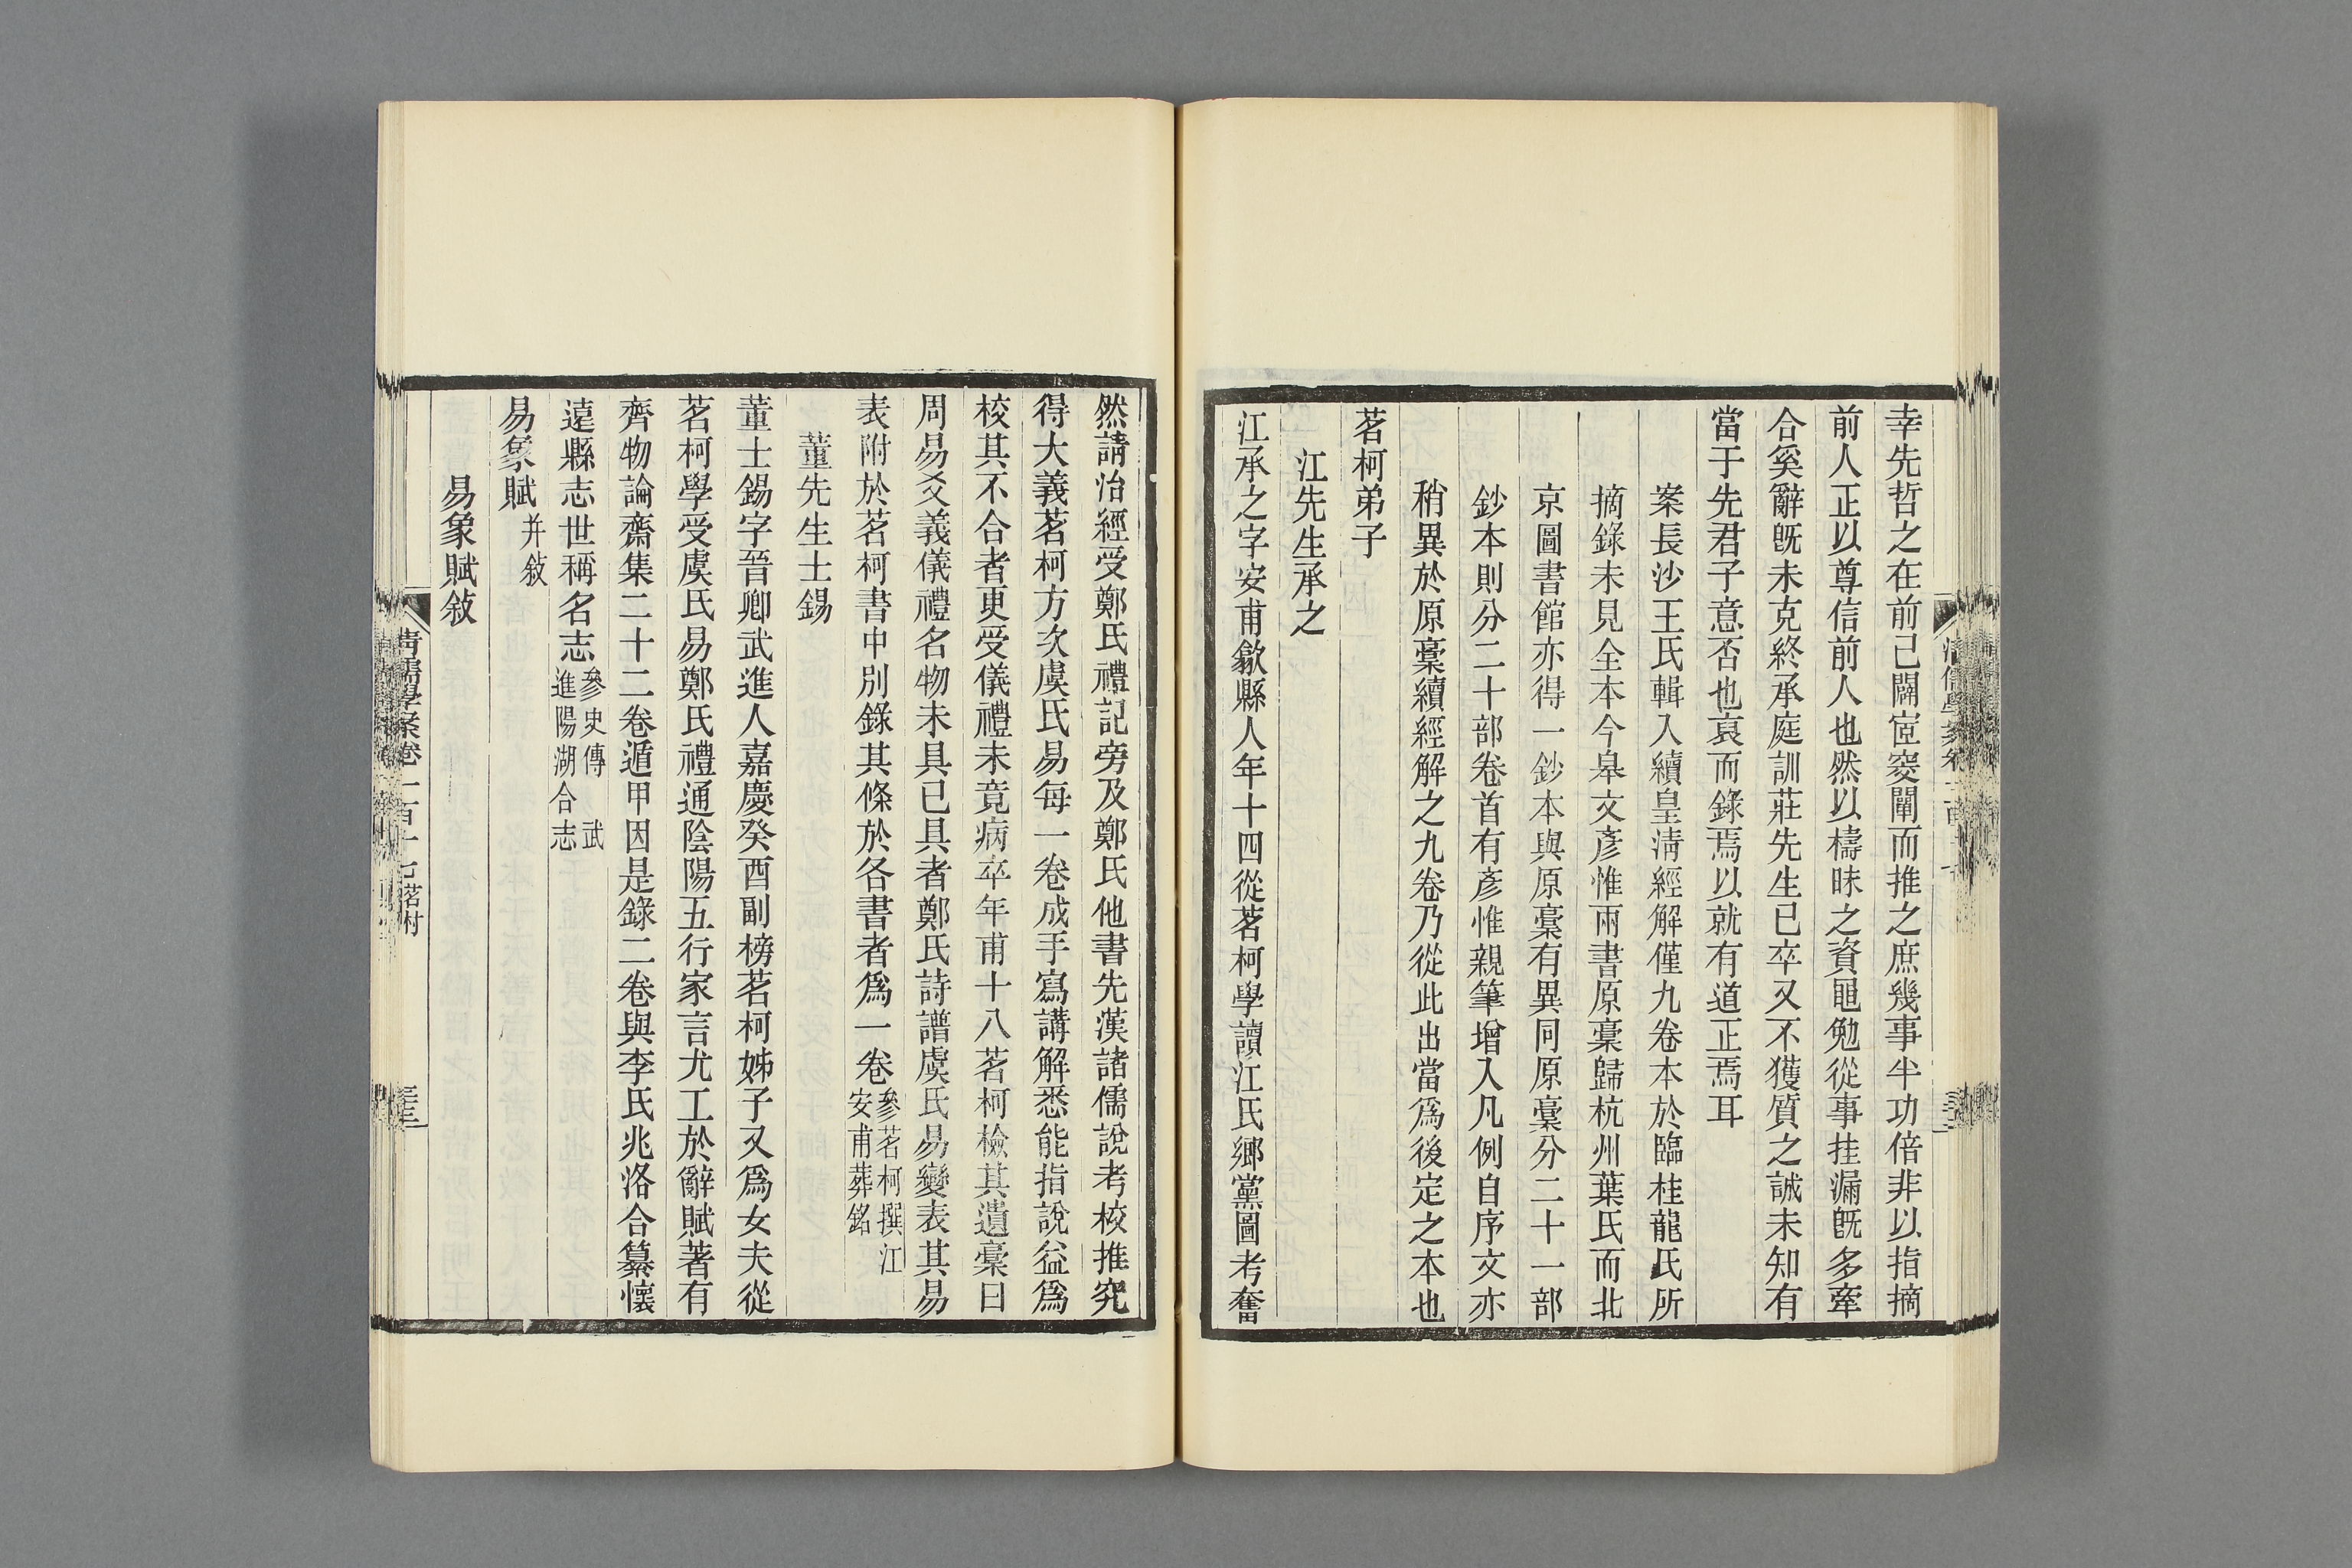 幸先哲之在前已闢窔闡而推之庶幾事半功倍非以指摘
前人正以尊信前人也然以檮昧之資黽勉從事挂漏旣多牽
合奚辭旣未克終承庭訓莊先生已卒又不獲質之誠未知有
當于先君子意否也哀而錄焉以就有道正焉耳
案長沙王氏輯入續皇淸經解僅九卷本於臨桂龍氏所
摘錄未見全本今皐文彥惟兩書原稾歸杭州葉氏而北
京圖書館亦得一鈔本與原稾有異同原稾分二十一部
鈔本則分二十部卷首有彥惟親筆增入凡例自序文亦
稍異於原稾續經解之九卷乃從此出當爲後定之本也
茗柯弟子
江先生承之
江承之字安甫歙縣人年十四從茗柯學讀江氏鄉黨圖考奮
然請治經受鄭氏禮記旁及鄭氏他書先漢諸儒說考校推究
得大義茗柯方次虞氏易每一卷成手寫講解悉能指說益爲
校其不合者更受儀禮未竟病卒年甫十八茗柯檢其遺稾曰
周易爻義儀禮名物未具已具者鄭氏詩譜虞氏易變表其易
表附於茗柯書中別錄其條於各書者爲一卷參茗柯撰江安甫葬銘
董先生士錫
董士錫字晉卿武進人嘉慶癸酉副榜茗柯姊子又爲女夫從
茗柯學受虞氏易鄭氏禮通陰陽五行家言尤工於辭賦著有
齊物論齋集二十二卷遁甲因是錄二卷與李氏兆洛合纂懷
遠縣志世稱名志參史傳 武進陽湖合志
易象賦并敍
易象賦敍
清儒學案卷一百十七 茗柯